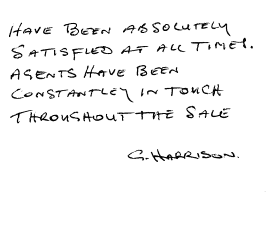 HAVE BEEN ABSOLUTELY
SATISFIED AT ALL TIMES.
AGENTS HAVE BEEN
CONSTANTLEY IN TOUCH
THROUGHOUT THE SALE
G. HARRISON.